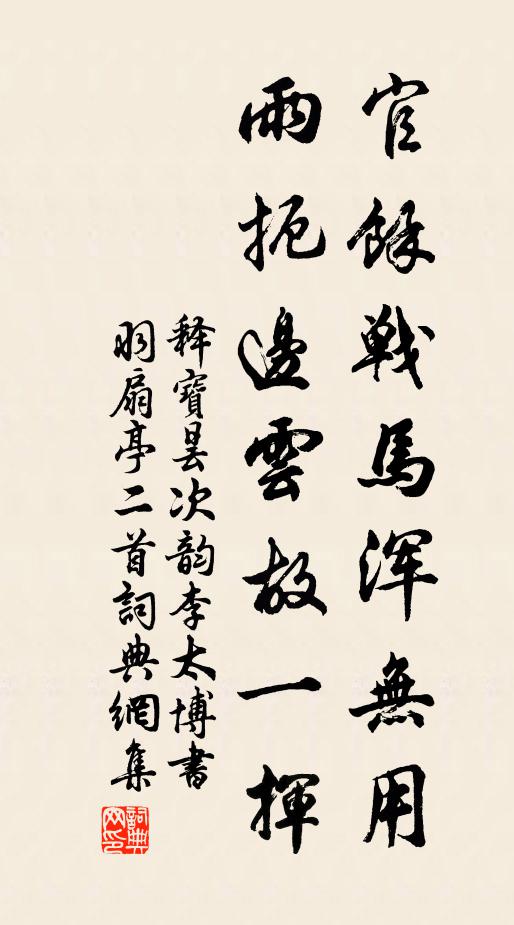 官餘戰馬渾無用
雨扼邊雲故一揮
释寶曇次韵李太博書
羽扇亭二首詞典網集
詞典網印